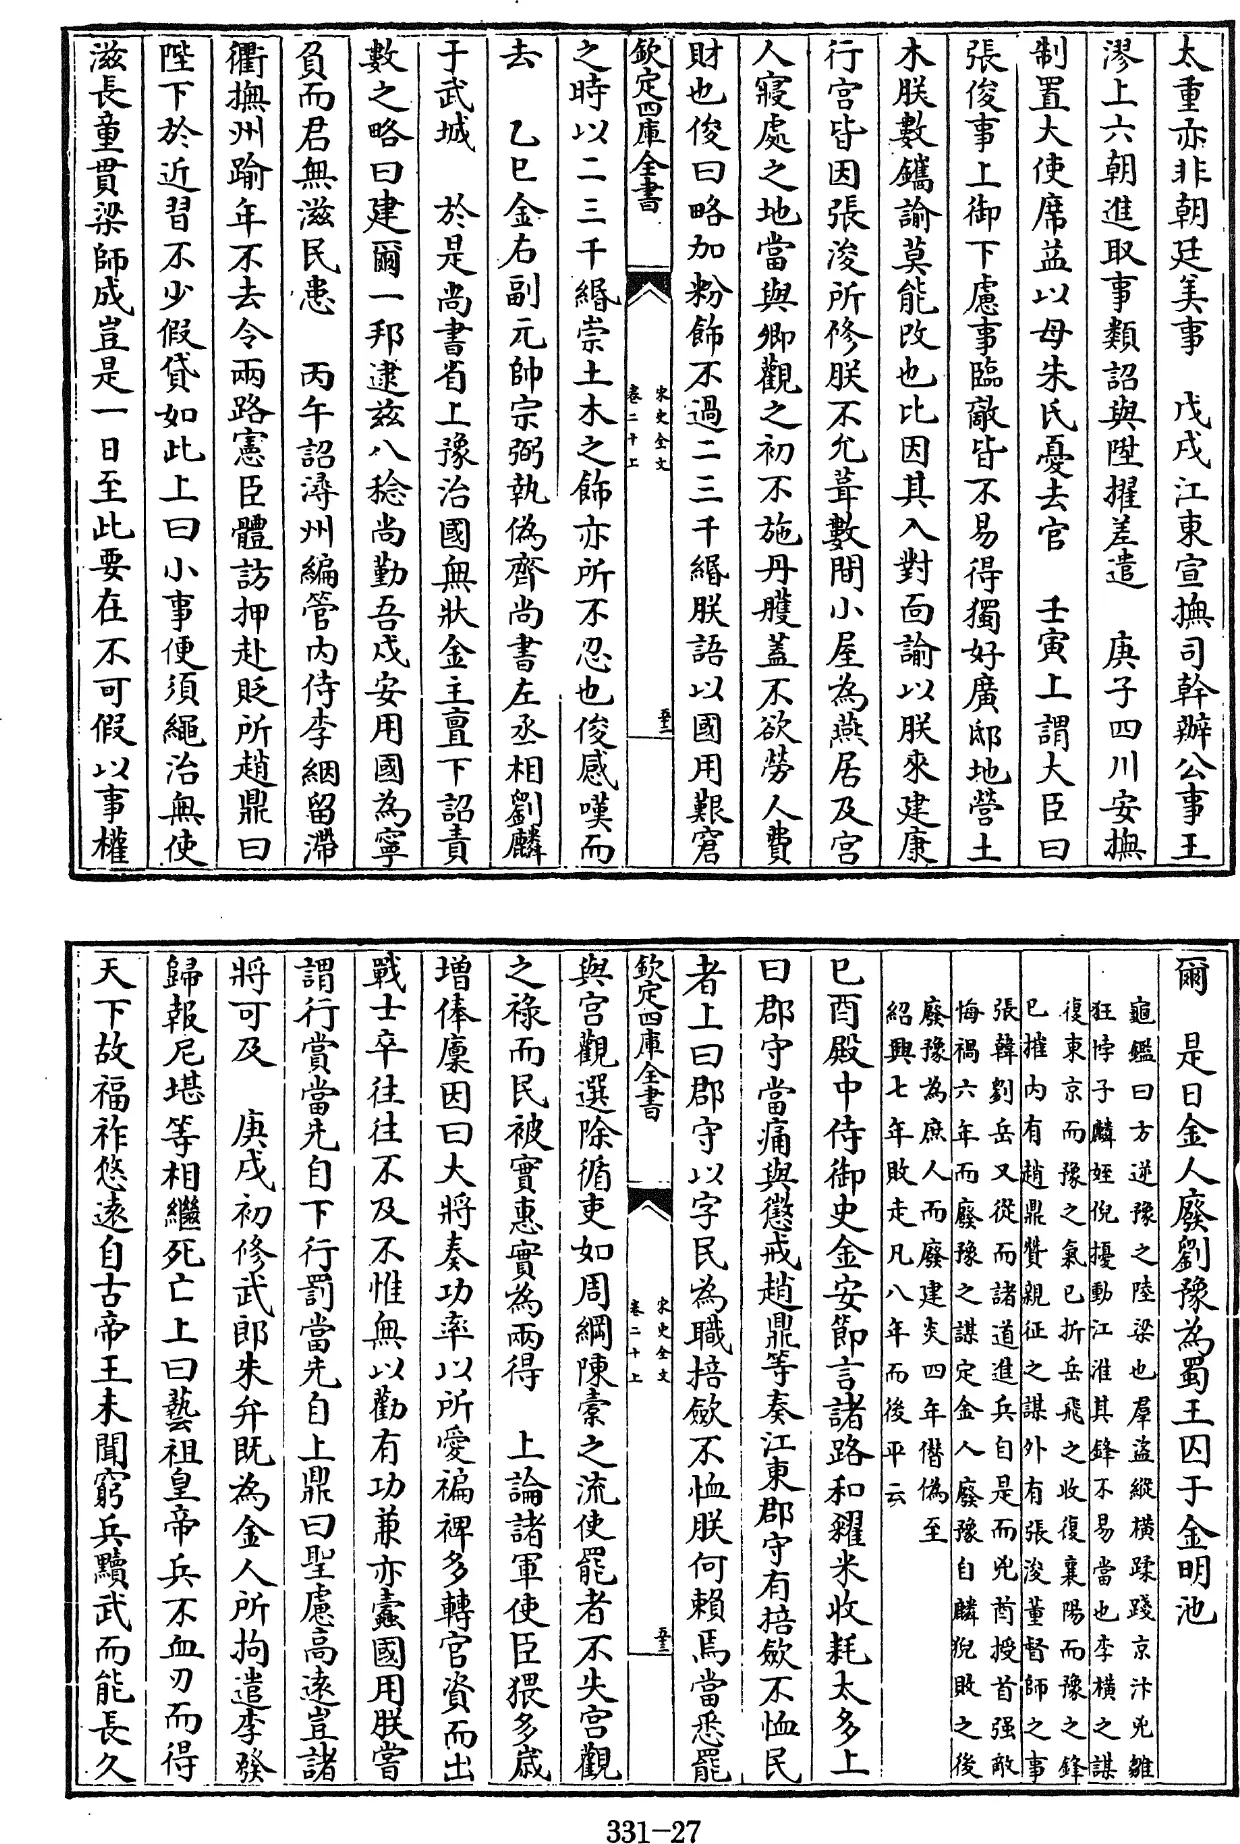 太重亦非朝廷美事　戊戌江東宣撫司幹辦公事王
漻上六朝進取事類詔與陞擢差遣　庚子四川安撫
制置大使席益以母朱氏憂去官　壬寅上謂大臣曰
張俊事上御下慮事臨敵皆不易得獨好廣邸地營土
木朕數鐫諭莫能改也比因其入對面諭以朕來建康
行宮皆因張浚所修朕不允葺數間小屋為燕居及宮
人寢處之地當與卿觀之初不施丹雘蓋不欲勞人費
財也俊曰略加粉飾不過二三千緡朕語以國用艱窘
欽定四庫全書
宋史全文
卷二十上
五十二
之時以二三千緡崇土木之飾亦所不忍也俊感嘆而
去　乙巳金右副元帥宗弼執偽齊尚書左丞相劉麟
于武城　於是尚書省上豫治國無狀金主亶下詔責
數之略曰建爾一邦逮茲八稔尚勤吾戍安用國為寧
負而君無滋民患　丙午詔潯州編管內侍李絪留滯
衢撫州踰年不去令兩路憲臣體訪押赴貶所趙鼎曰
陛下於近習不少假貸如此上曰小事便須繩治無使
滋長童貫梁師成豈是一日至此要在不可假以事權
爾　是日金人廢劉豫為蜀王囚于金明池
龜鑑曰方逆豫之陸梁也羣盜縱橫蹂踐京汴兇雛
狂悖子麟姪倪擾動江淮其鋒不易當也李橫之謀
復東京而豫之氣已折岳飛之收復襄陽而豫之鋒
已摧內有趙鼎贊親征之謀外有張浚董督師之事
張韓劉岳又從而諸道進兵自是而兇酋授首强敵
悔禍六年而廢豫之謀定金人廢豫自麟猊敗之後
廢豫為庶人而廢建炎四年僭偽至
紹興七年敗走凡八年而後平云
已酉殿中侍御史金安節言諸路和糴米收耗太多上
曰郡守當痛與懲戒趙鼎等奏江東郡守有掊歛不恤民
者上曰郡守以字民為職掊歛不恤朕何賴焉當悉罷
欽定四庫全書
宋史全文
卷二十上
五十三
與宮觀選除循吏如周綱陳橐之流使罷者不失宮觀
之祿而民被實惠實為兩得　上論諸軍使臣猥多歲
增俸廩因曰大將奏功率以所愛褊裨多轉官資而出
戰士卒往往不及不惟無以勸有功兼亦蠹國用朕嘗
謂行賞當先自下行罰當先自上鼎曰聖慮高遠豈諸
將可及　庚戌初修武郎朱弁既為金人所拘遣李發
歸報尼堪等相繼死亡上曰藝祖皇帝兵不血刃而得
天下故福祚悠遠自古帝王未聞窮兵黷武而能長久
331-27